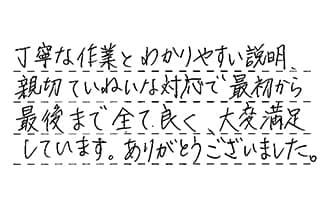 丁寧な作業とわかりやすい説明、
親切ていねいな対応で最初から
最後まで全て良く、大変満足
しています。ありがとうございました。